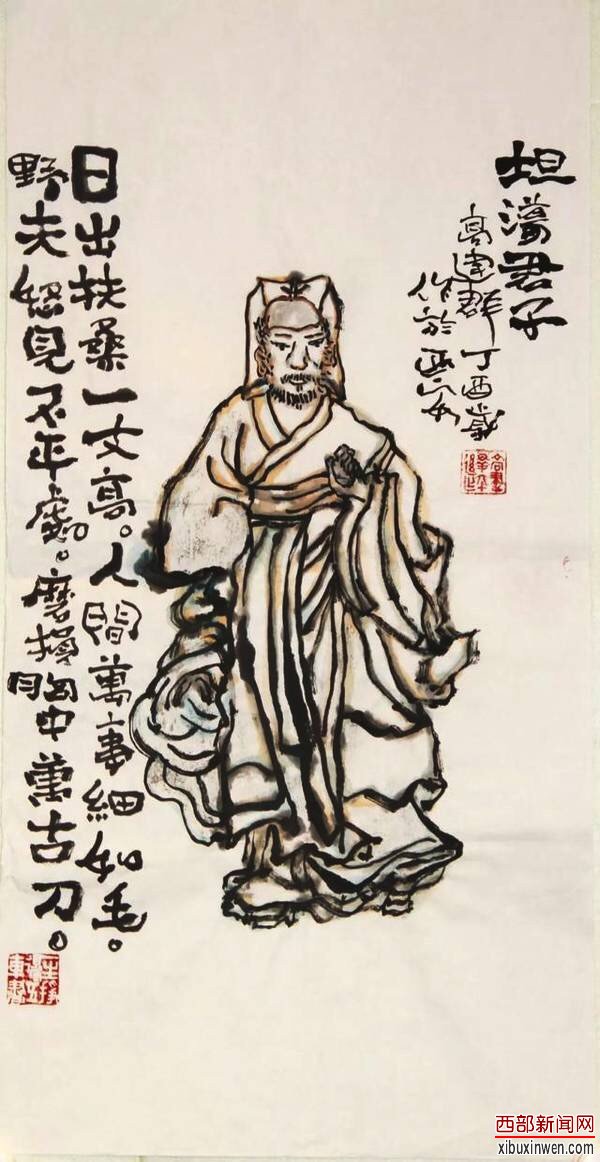 坦蕩君子
高建群丁酉歲
作於西安
日出扶桑一丈高。人間萬事細如毛。
野夫怒見不平處。磨損胸中萬古刀。
西部新闻网
xibuxinwen.com